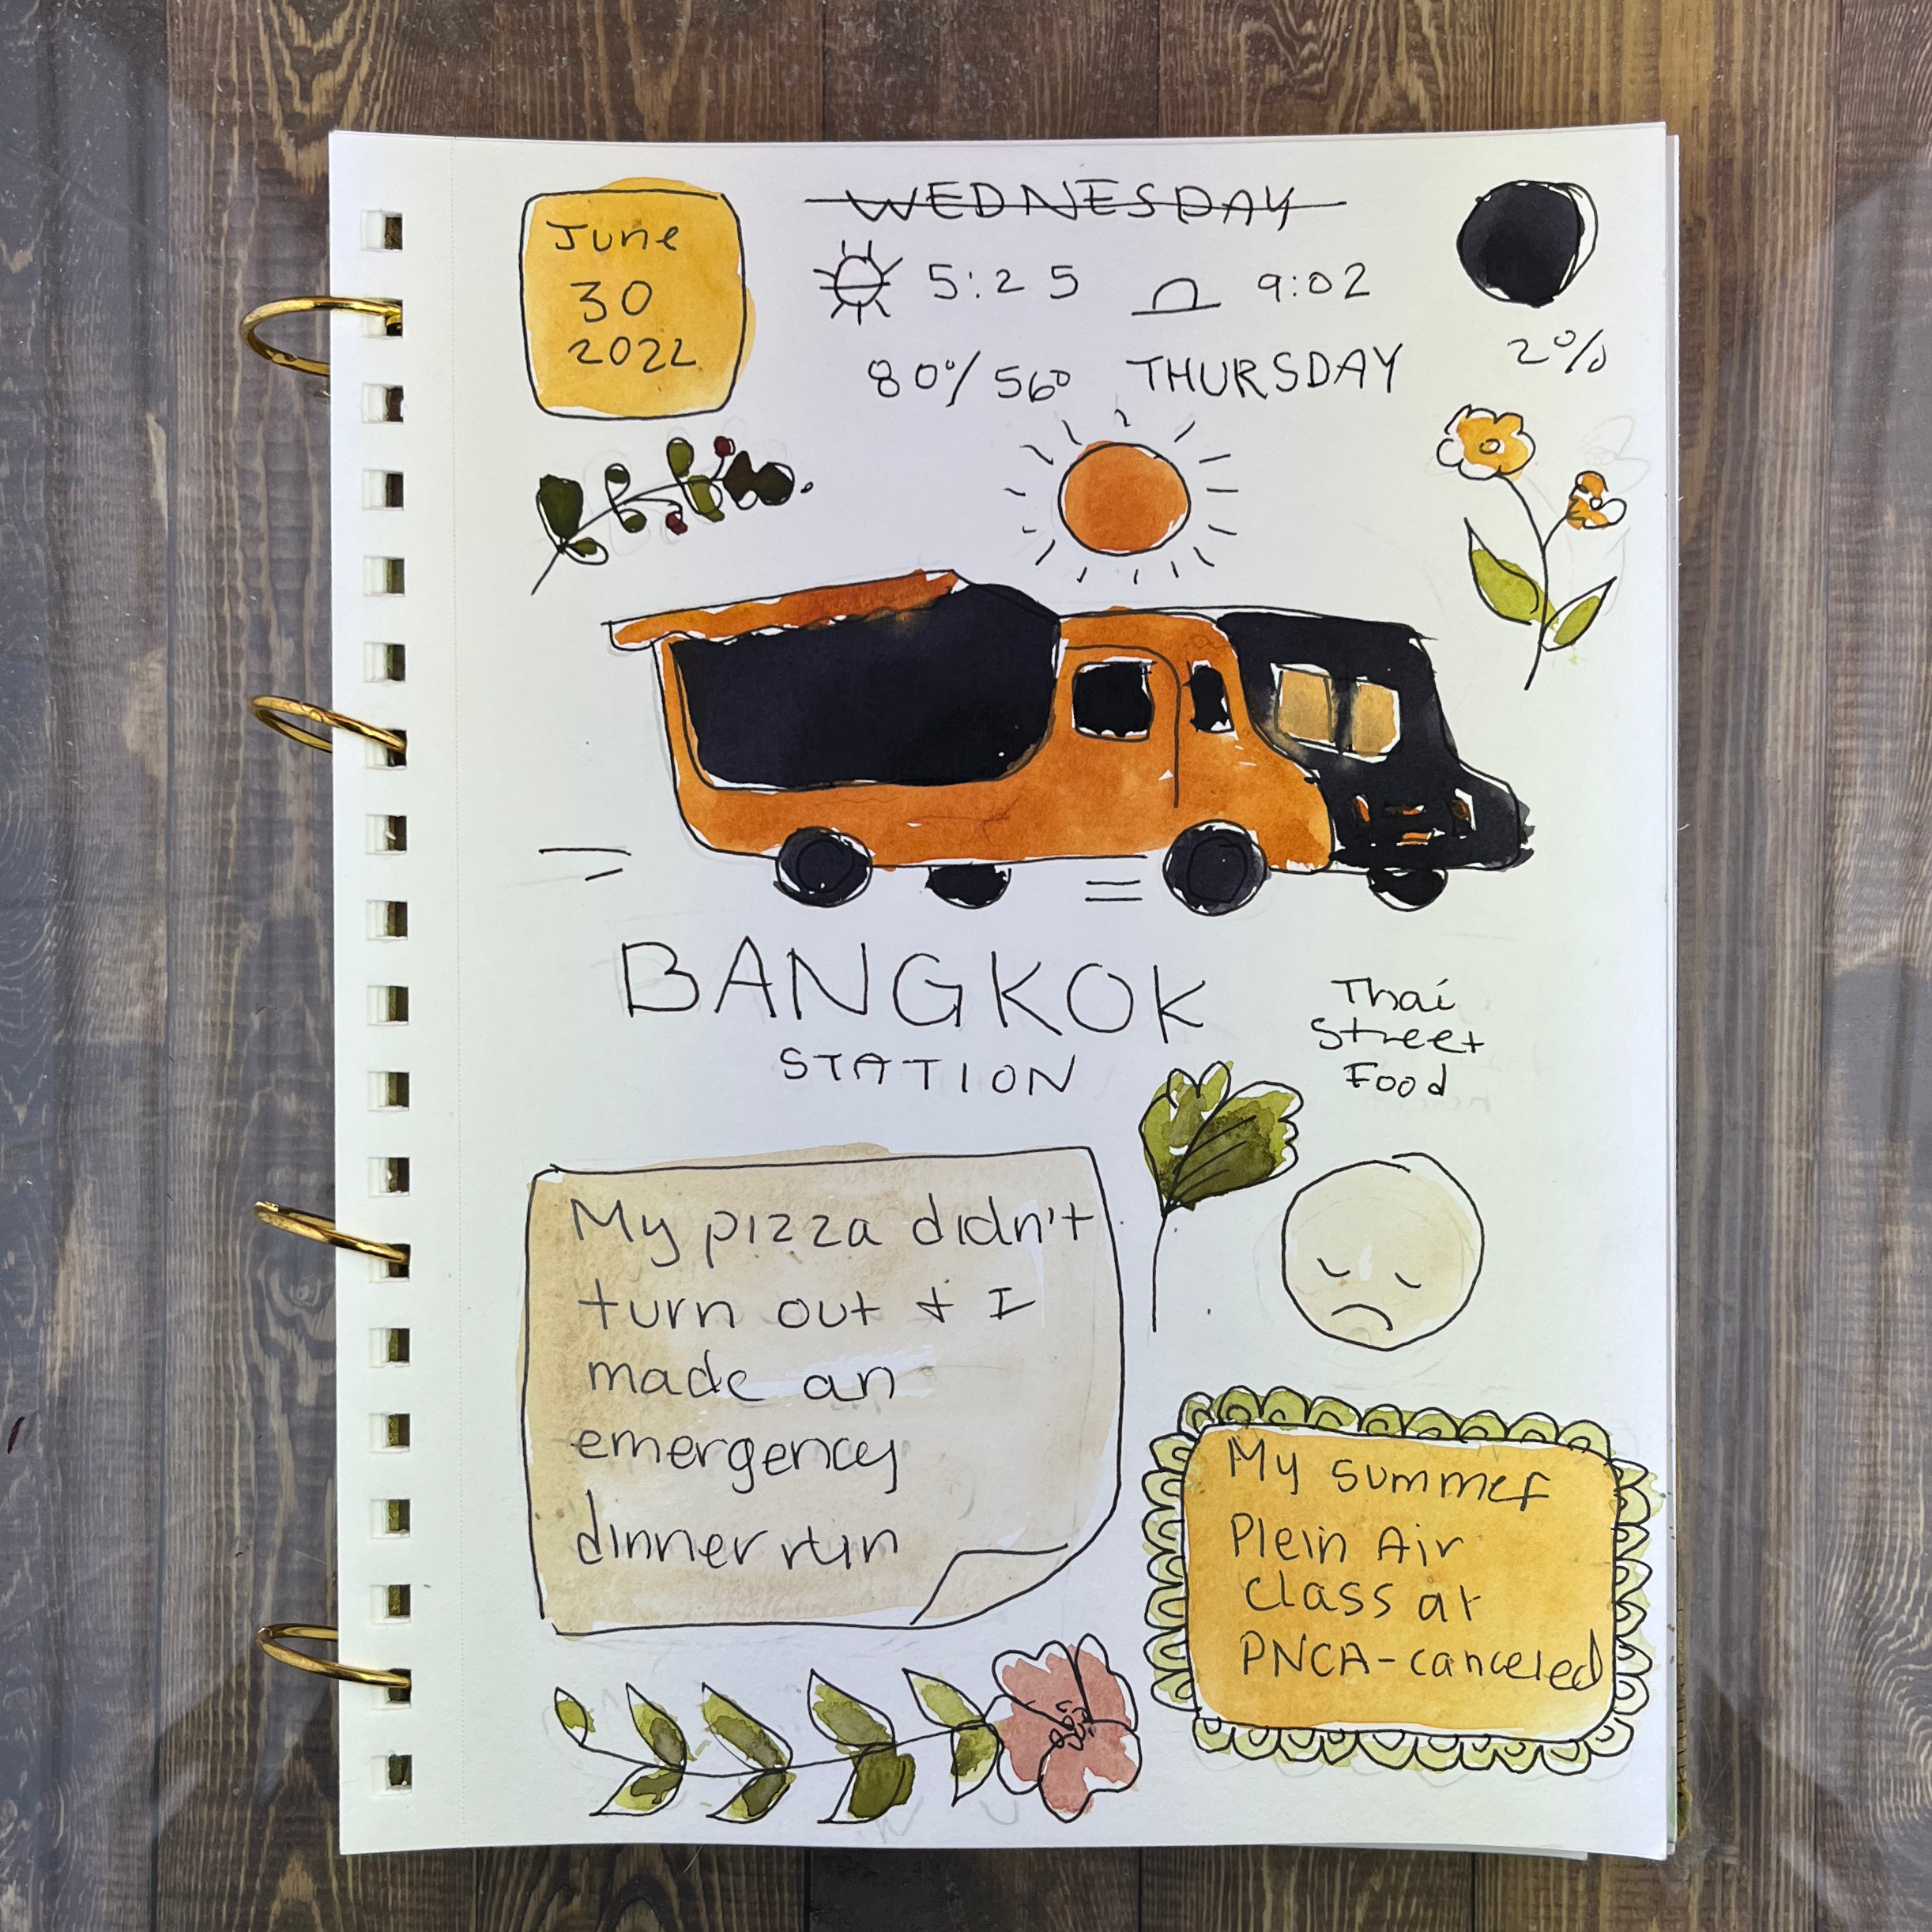 June
30
2022
WEDNESDAY
5:25 9:02
80°/56° THURSDAY
2%
BANGKOK
STATION
Thai
Street
Food
My pizza didn't
turn out + I
made an
emergency
dinner run
My summer
Plein Air
Class at
PNCA-canceled